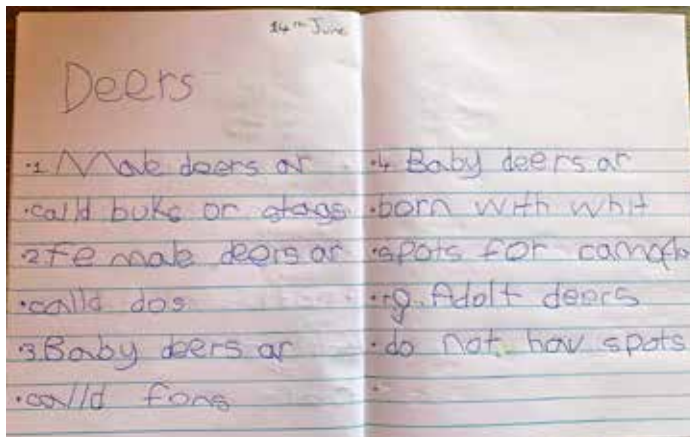 14th June
Deers
·1 Male deers ar
·calld buks or stags
·2 Fe male deers ar
·calld dos
·3 Baby deers ar
·calld fons
·4 Baby deers ar
·born with whit
·spots for camofo
·rg. Adolt deers
·do not hav spots